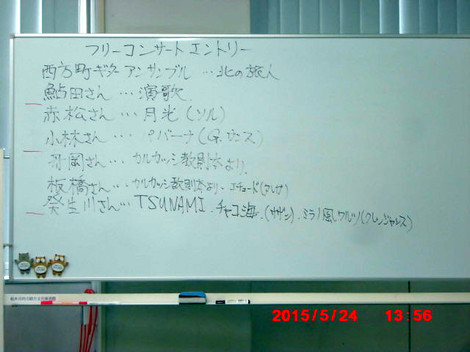 フリーコンサートエントリー
西方町ギターアンサンブル…北の旅人
鮎田さん…演歌
赤松さん…月光(ソル)
小林さん…
岡さん…カルカッシ教則本より
板橋さん…カルカッシ教則本より・エチュード
癸生川さん…TSUNAMI.チャコ海.(サザン).ミラノ風ワルツ
2015/5/24 13:56